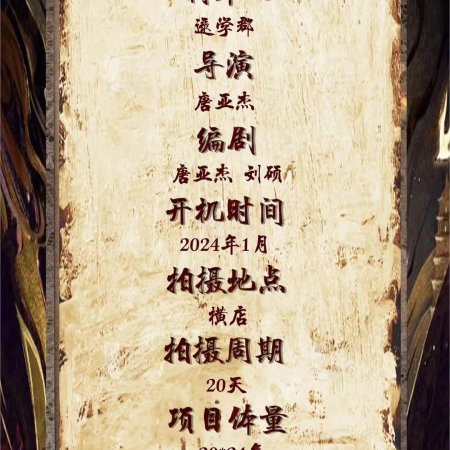 逯学郡
导演
唐亚杰
编剧
唐亚杰 刘硕
开机时间
2024年1月
拍摄地点
横店
拍摄周期
20天
项目体量